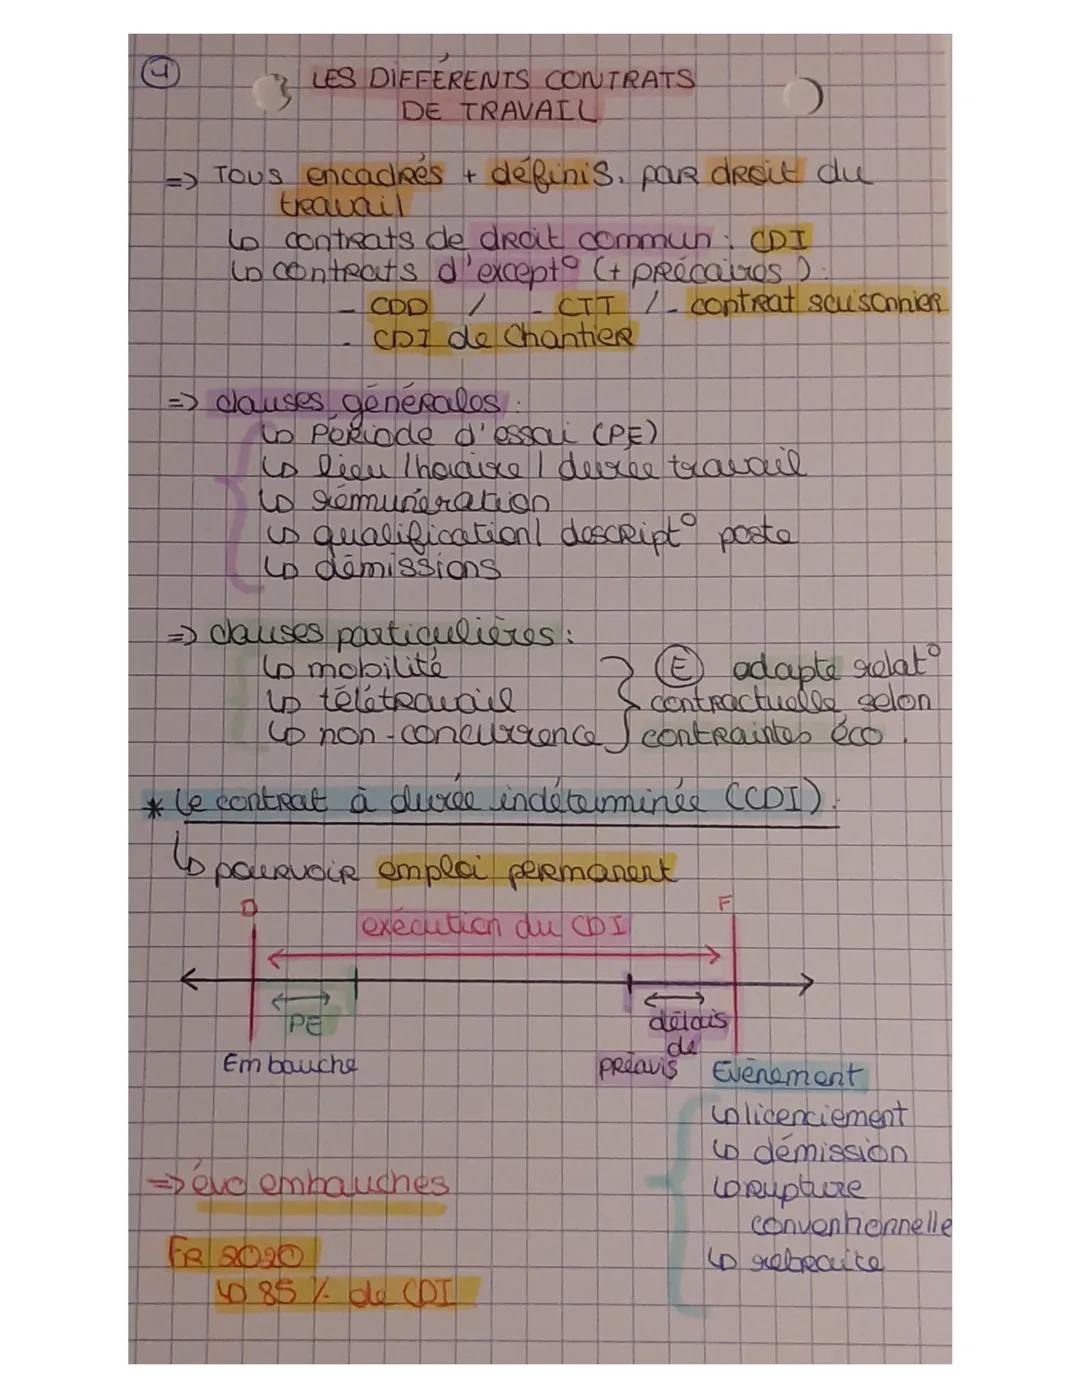 4
LES DIFFÉRENTS CONTRATS
DE TRAVAIL
=> Tous encadrés + définis par droit du
travail
↳ contrats de droit commun : CDI
↳ contrats d'except° (+ précaires) :
- CDD / - CTT / - contrat saisonnier
- CDI de Chantier
=> clauses générales :
↳ Période d'essai (PE)
↳ lieu / horaire / durée travail
↳ rémunération
↳ qualification / descript° poste
↳ démissions
=> clauses particulières :
↳ mobilité
↳ télétravail
↳ non-concurrence
E adapte relat°
contractuelle selon
contraintes éco.
* Le contrat à durée indéterminée (CDI) :
↳ pourvoir emploi permanent
D
F
exécution du CDI
PE
délais
de
préavis
Embauche
Evènement
↳ licenciement
↳ démission
↳ rupture
conventionnelle
↳ retraite
=> évo embauches
FR 2020
↳ 85 % de CDI